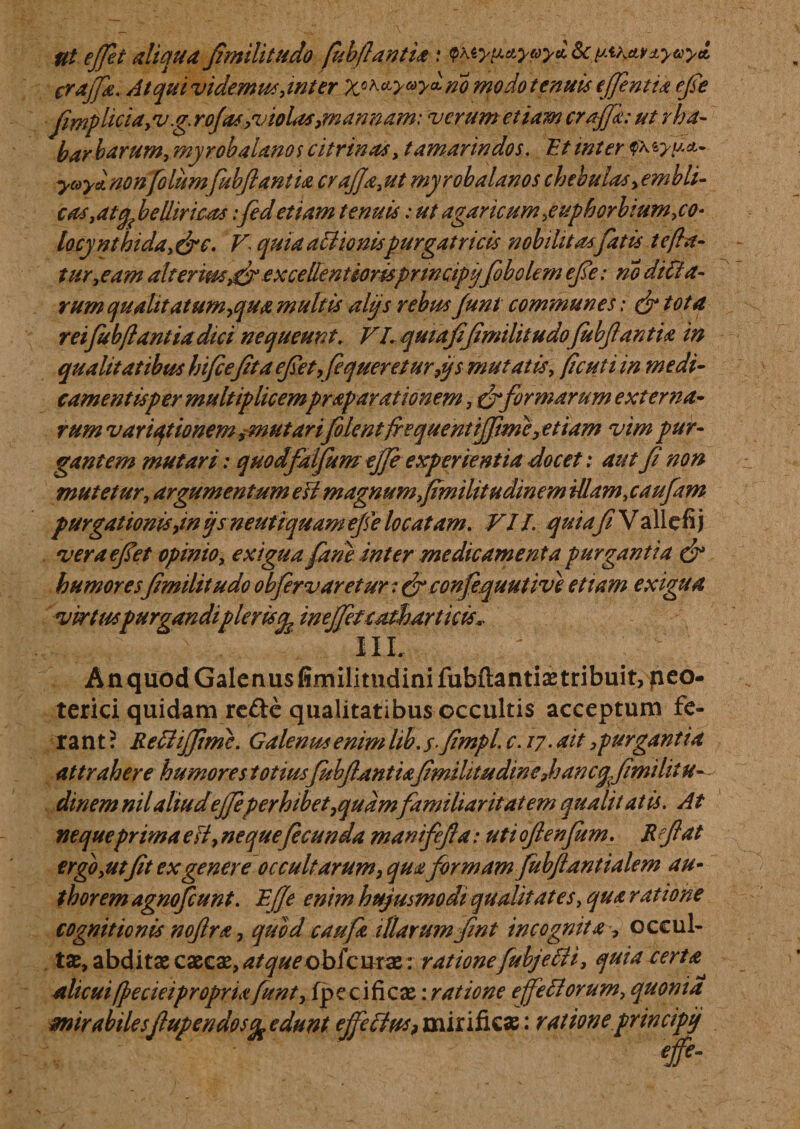 ut esset aliqua similitudo substantiæ : φλεγμαγωγὰ & μελαναγωγὰ
crassæ. Atqui videmus, inter χολαγωγὰ nō modo tenuis essentiæ esse
simplicia, v.g. rosas, violas, mannam: verum etiam crassæ: ut rha-
barbarum, myrobalanos citrinas, tamarindos. Et inter φλεγμα-
γωγὰ non solùm substantiæ crassæ, ut myrobalanos chebulas, embli-
cas, atq; belliricas : sed etiam tenuis : ut agaricum, euphorbium, co-
locynthida, &c. V. quia actionis purgatricis nobilitas satis testa-
tur, eam alterius, & excellentioris principij sobolem esse: nō dicta-
rum qualitatum, quæ multis alijs rebus sunt communes : & tota
rei substantia dici nequeunt. VI. quia si similitudo substantiæ in
qualitatibus hisce sita esset, sequeretur, ijs mutatis, sicuti in medi-
camentis per multiplicem præparationem, & formarum externa-
rum variationem, mutari solent frequentissimè, etiam vim pur-
gantem mutari : quod falsum esse experientia docet : aut si non
mutetur, argumentum est magnum, similitudinem illam, causam
purgationis, in ijs neutiquam esse locatam. VII. quia si Vallesij
vera esset opinio, exigua sanè inter medicamenta purgantia &
humores similitudo observaretur : & consequutivè etiam exigua
virtus purgandi plerisq; inesset catharticis.
III.
An quod Galenus similitudini substantiæ tribuit, neo-
terici quidam rectè qualitatibus occultis acceptum fe-
rant? Rectissimè. Galenus enim lib. 5. simpl. c. 17. ait, purgantia
attrahere humores totius substantiæ similitudine, hancq; similitu-
dinem nil aliud esse perhibet, quàm familiaritatem qualitatis. At
neque prima est, neque secunda manifesta : uti ostensum. Restat
ergò, ut sit ex genere occultarum, quæ formam substantialem au-
thorem agnoscunt. Esse enim hujusmodi qualitates, quæ ratione
cognitionis nostræ, quòd causæ illarum sint incognitæ, occul-
tæ, abditæ cæcæ, atque obscuræ : ratione subjecti, quia certæ
alicui speciei propriæ sunt, specificæ : ratione effectorum, quoniā
mirabiles stupendosq; edunt effectus, mirificæ : ratione principij
esse-